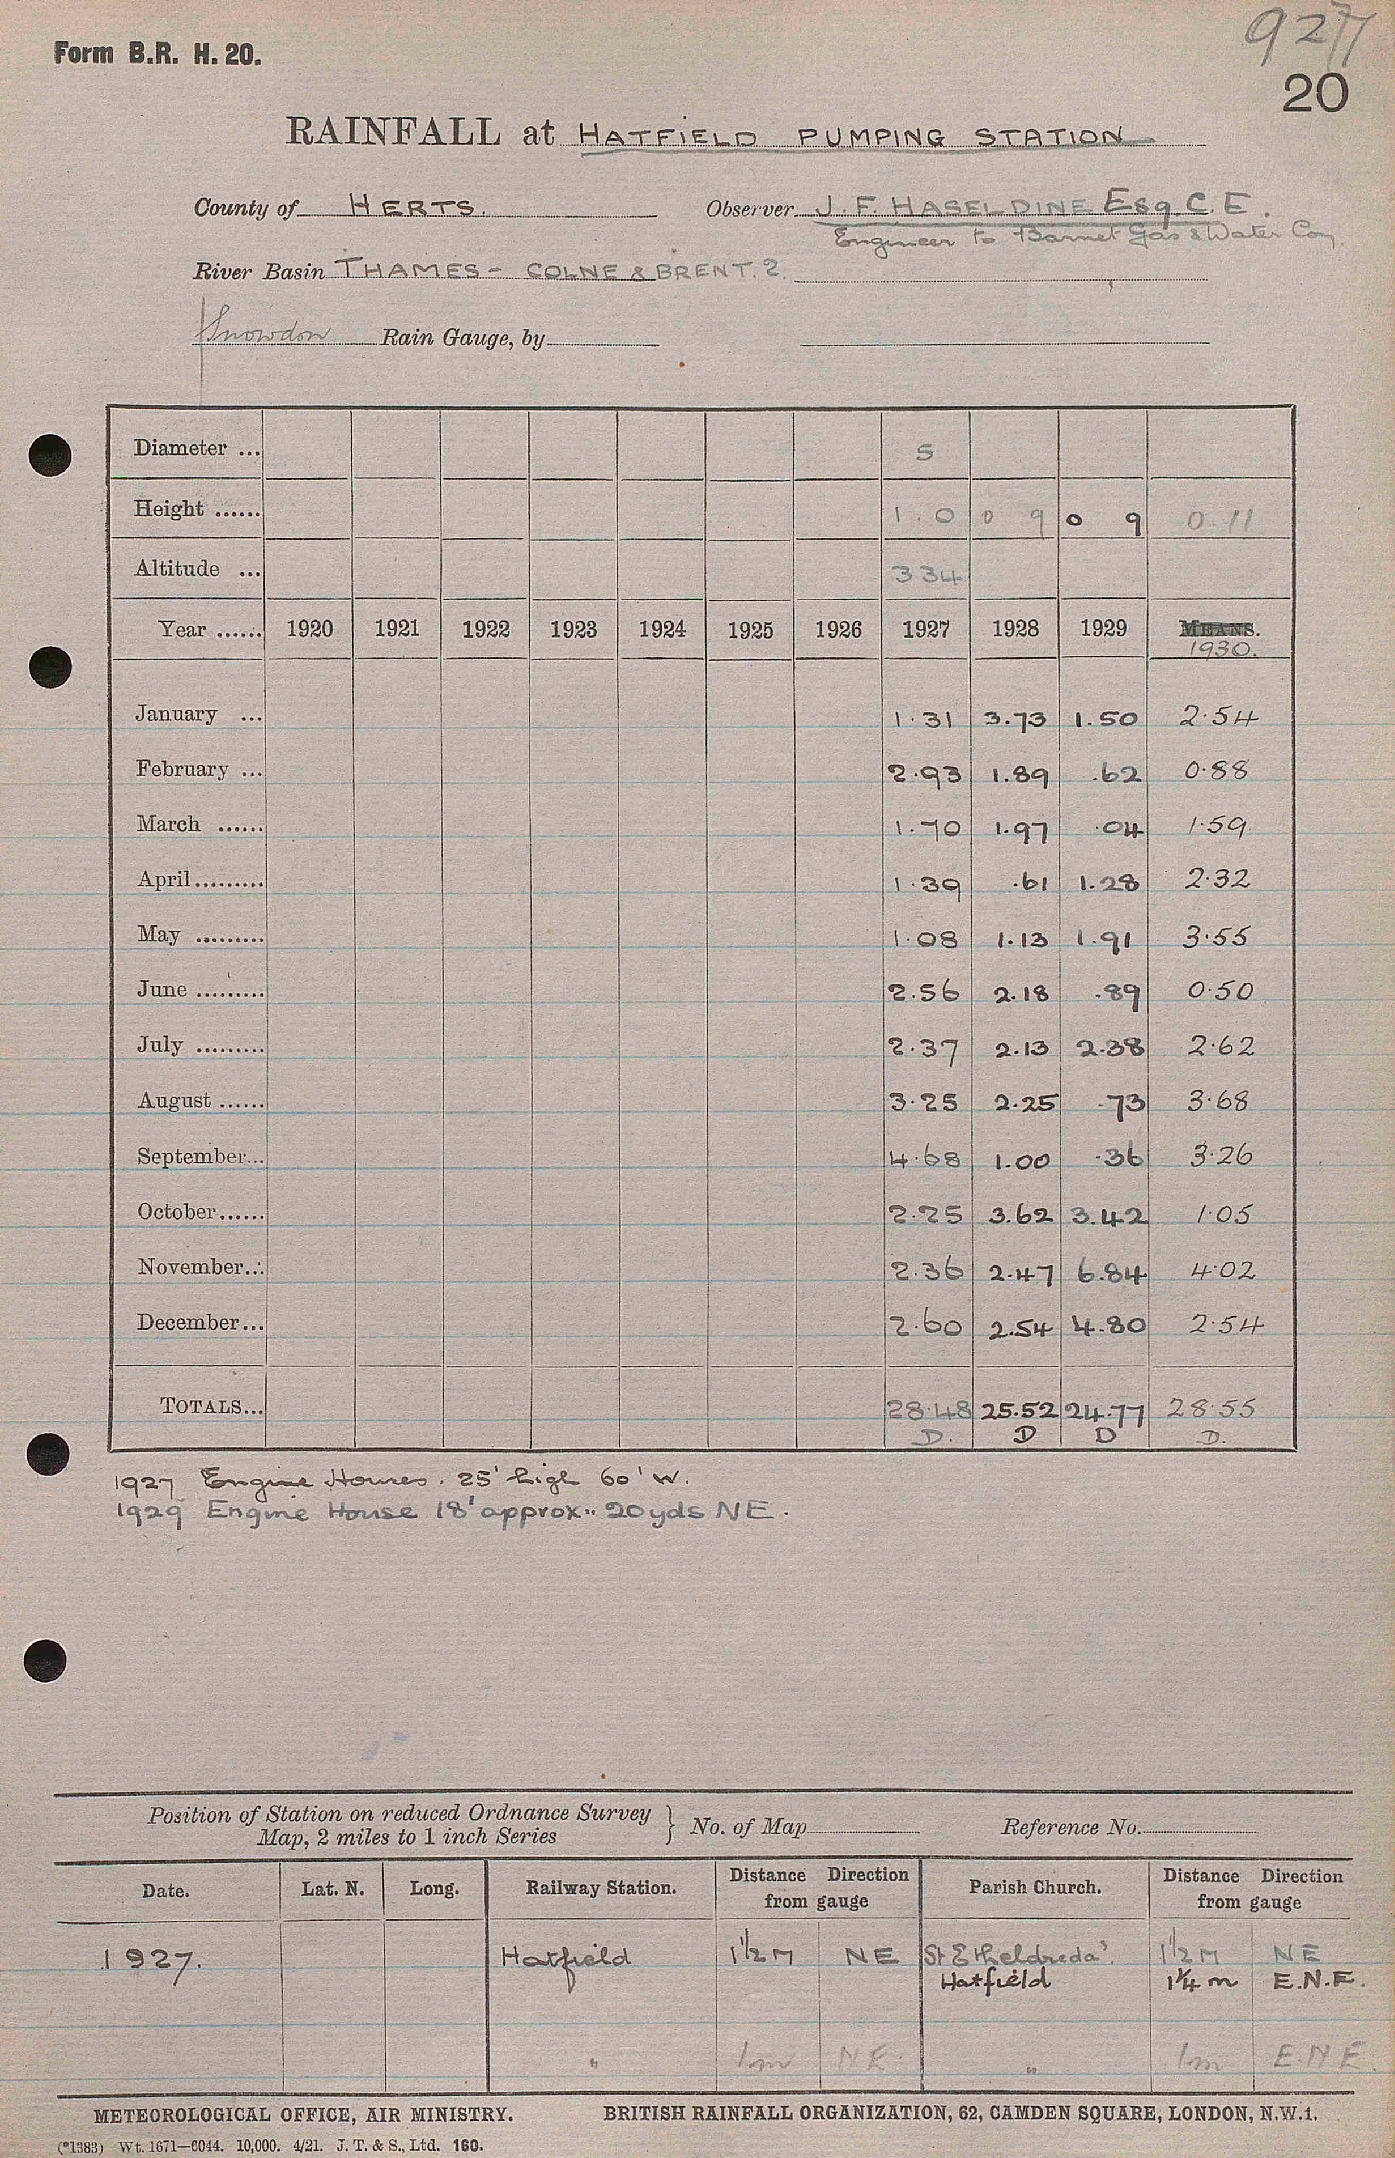 9277
Form B.R. H. 20.
20
RAINFALL at HATFIELD PUMPING STATION
County of HERTS. Observer J. F. HASELDINE Esq. C.E.
Engineer to Barnet Gas & Water Coy.
River Basin THAMES - COLNE & BRENT. 2.
Snowdon Rain Gauge, by
Diameter ... 5
Height ...... 1.0 0 9 0 9 0 11
Altitude ... 334
Year ...... 1920 1921 1922 1923 1924 1925 1926 1927 1928 1929 MEANS.
1930.
January ... 1.31 3.73 1.50 2.54
February ... 2.93 1.89 .62 0.88
March ...... 1.70 1.97 .04 1.59
April......... 1.39 .61 1.28 2.32
May ......... 1.08 1.13 1.91 3.55
June ......... 2.56 2.18 .89 0.50
July ......... 2.37 2.13 2.38 2.62
August ...... 3.25 2.25 .73 3.68
September... 4.68 1.00 .36 3.26
October...... 2.25 3.62 3.42 1.05
November... 2.36 2.47 6.84 4.02
December... 2.60 2.54 4.80 2.54
TOTALS... 28.48 25.52 24.77 28.55
D. D D D.
1927 Engine Houses. 25' high 60' W.
1929 Engine House 18' approx.. 20yds NE.
Position of Station on reduced Ordnance Survey
Map, 2 miles to 1 inch Series } No. of Map Reference No.
Date. Lat. N. Long. Railway Station. Distance Direction from gauge Parish Church. Distance Direction from gauge
1927. Hatfield 1½ M NE St Etheldreda's. 1½ M NE
Hatfield 1¼ m E.N.E.
" 1m NE. " 1m E.N.E.
METEOROLOGICAL OFFICE, AIR MINISTRY. BRITISH RAINFALL ORGANIZATION, 62, CAMDEN SQUARE, LONDON, N.W.1.
(*1383) Wt. 1671—6044. 10,000. 4/21. J. T. & S., Ltd. 160.